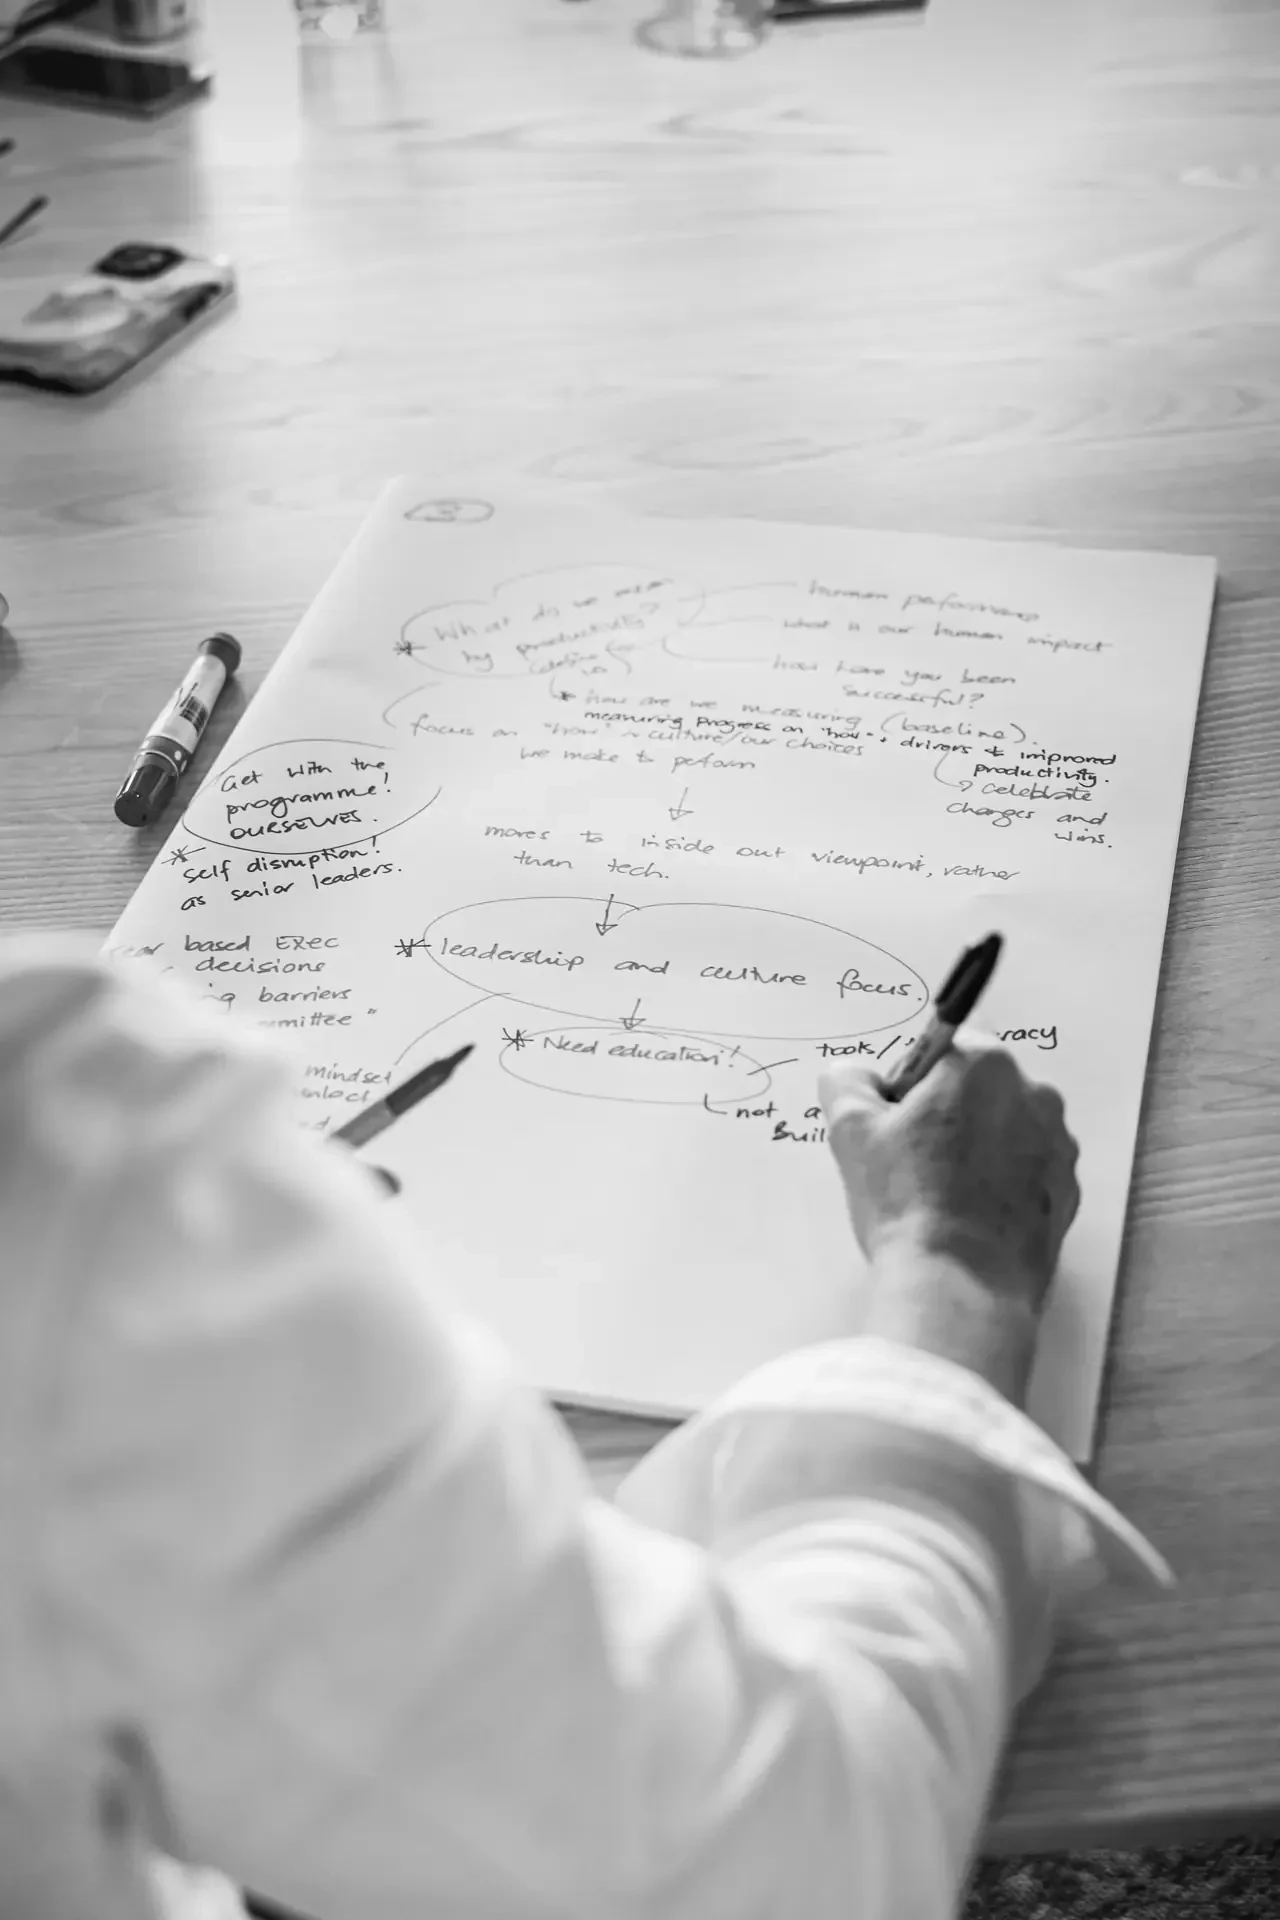 3
What do we mean
by productivity?
(define for
us)
human performance
what is our human impact
how have you been
successful?
how are we measuring (baseline).
measuring progress on "how" + drivers & improved
productivity.
celebrate
changes and
wins.
focus on "how" ~ culture/our choices
we make to perform
Get with the
programme!
OURSELVES.
self disruption!
as senior leaders.
moves to inside out viewpoint, rather
than tech.
leadership and culture focus.
Need education!
tools/
racy
not a
Buil
based Exec
decisions
barriers
mmittee"
mindset